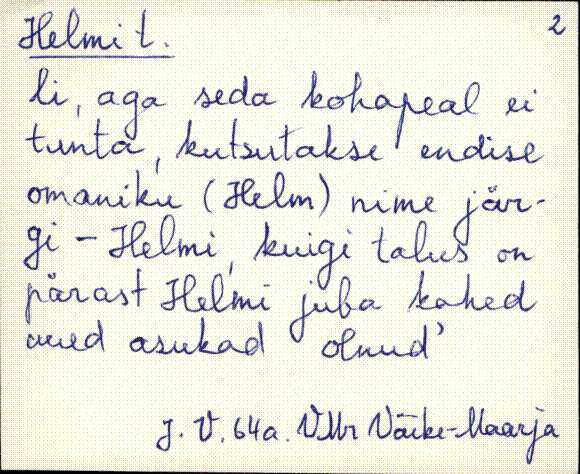 Helmi t. 2
li, aga seda kohapeal ei
tunta, kutsutakse endise
omaniku (Helm) nime jär-
gi - Helmi, kuigi talus on
pärast Helmi juba kahed
uued asukad olnud'
J. V. 64a. VMr Väike-Maarja